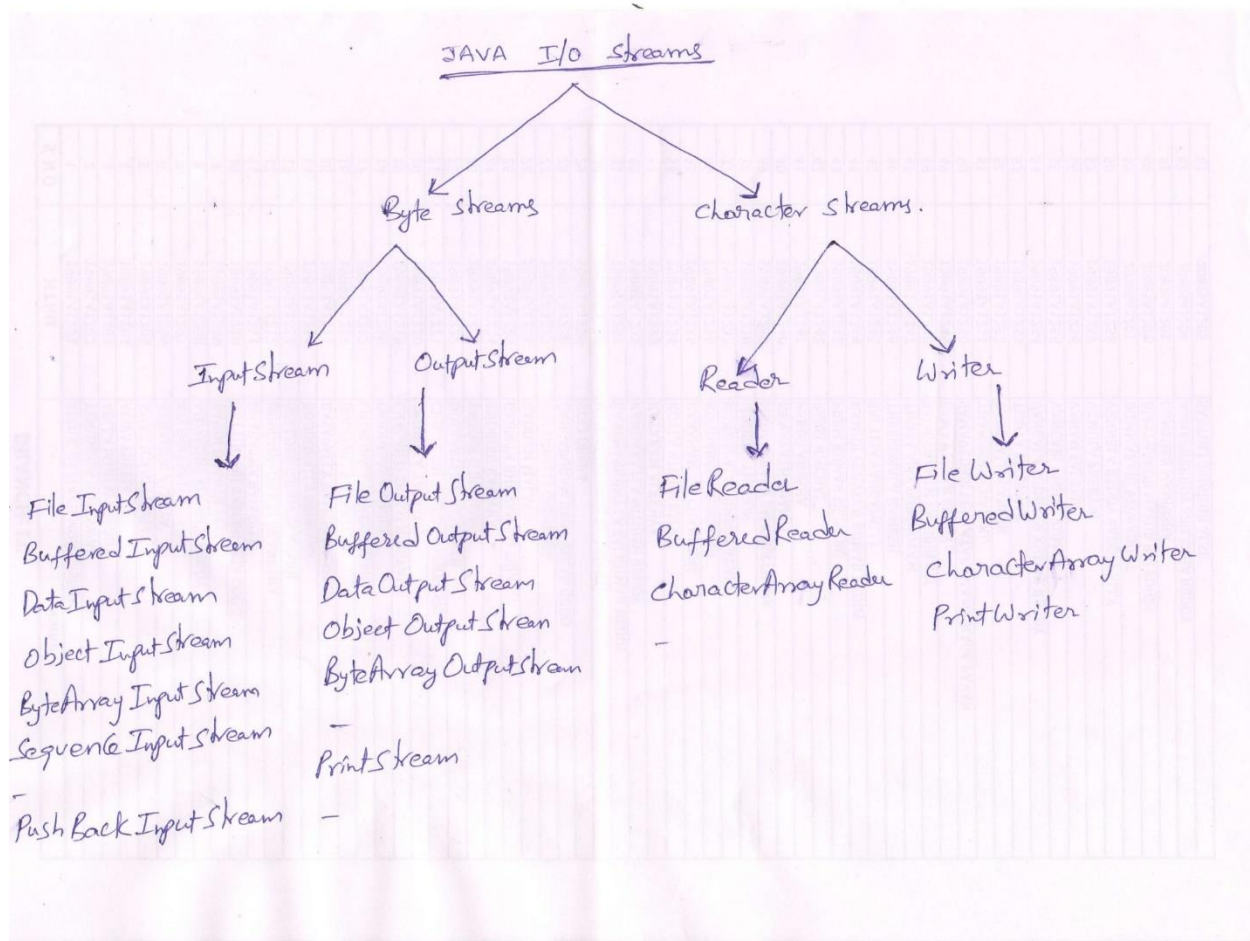 JAVA I/O Streams
Byte streams
Character streams.
InputStream
OutputStream
Reader
Writer
File InputStream
Buffered InputStream
Data InputStream
Object InputStream
ByteArray InputStream
Sequence InputStream
-
Push Back InputStream
File OutputStream
Buffered OutputStream
Data OutputStream
Object OutputStrean
ByteArray OutputStream
-
PrintStream
-
FileReader
BufferedReader
CharacterArrayReader
-
File Writer
BufferedWriter
CharacterArray Writer
PrintWriter